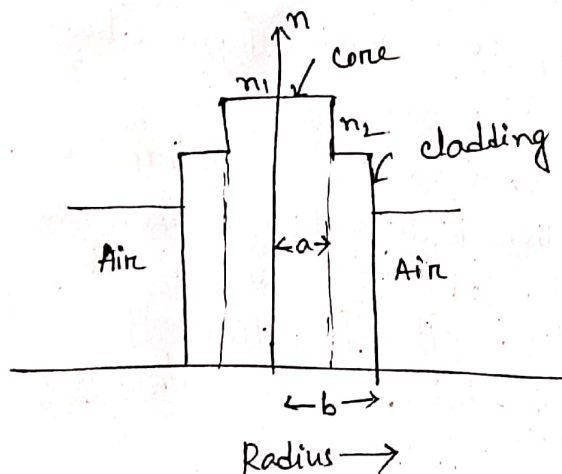 n
core
n1
n2
cladding
a
Air
Air
b
Radius